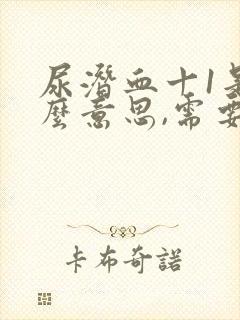 尿潜血十1是
麼意思,需要
卡布奇諾